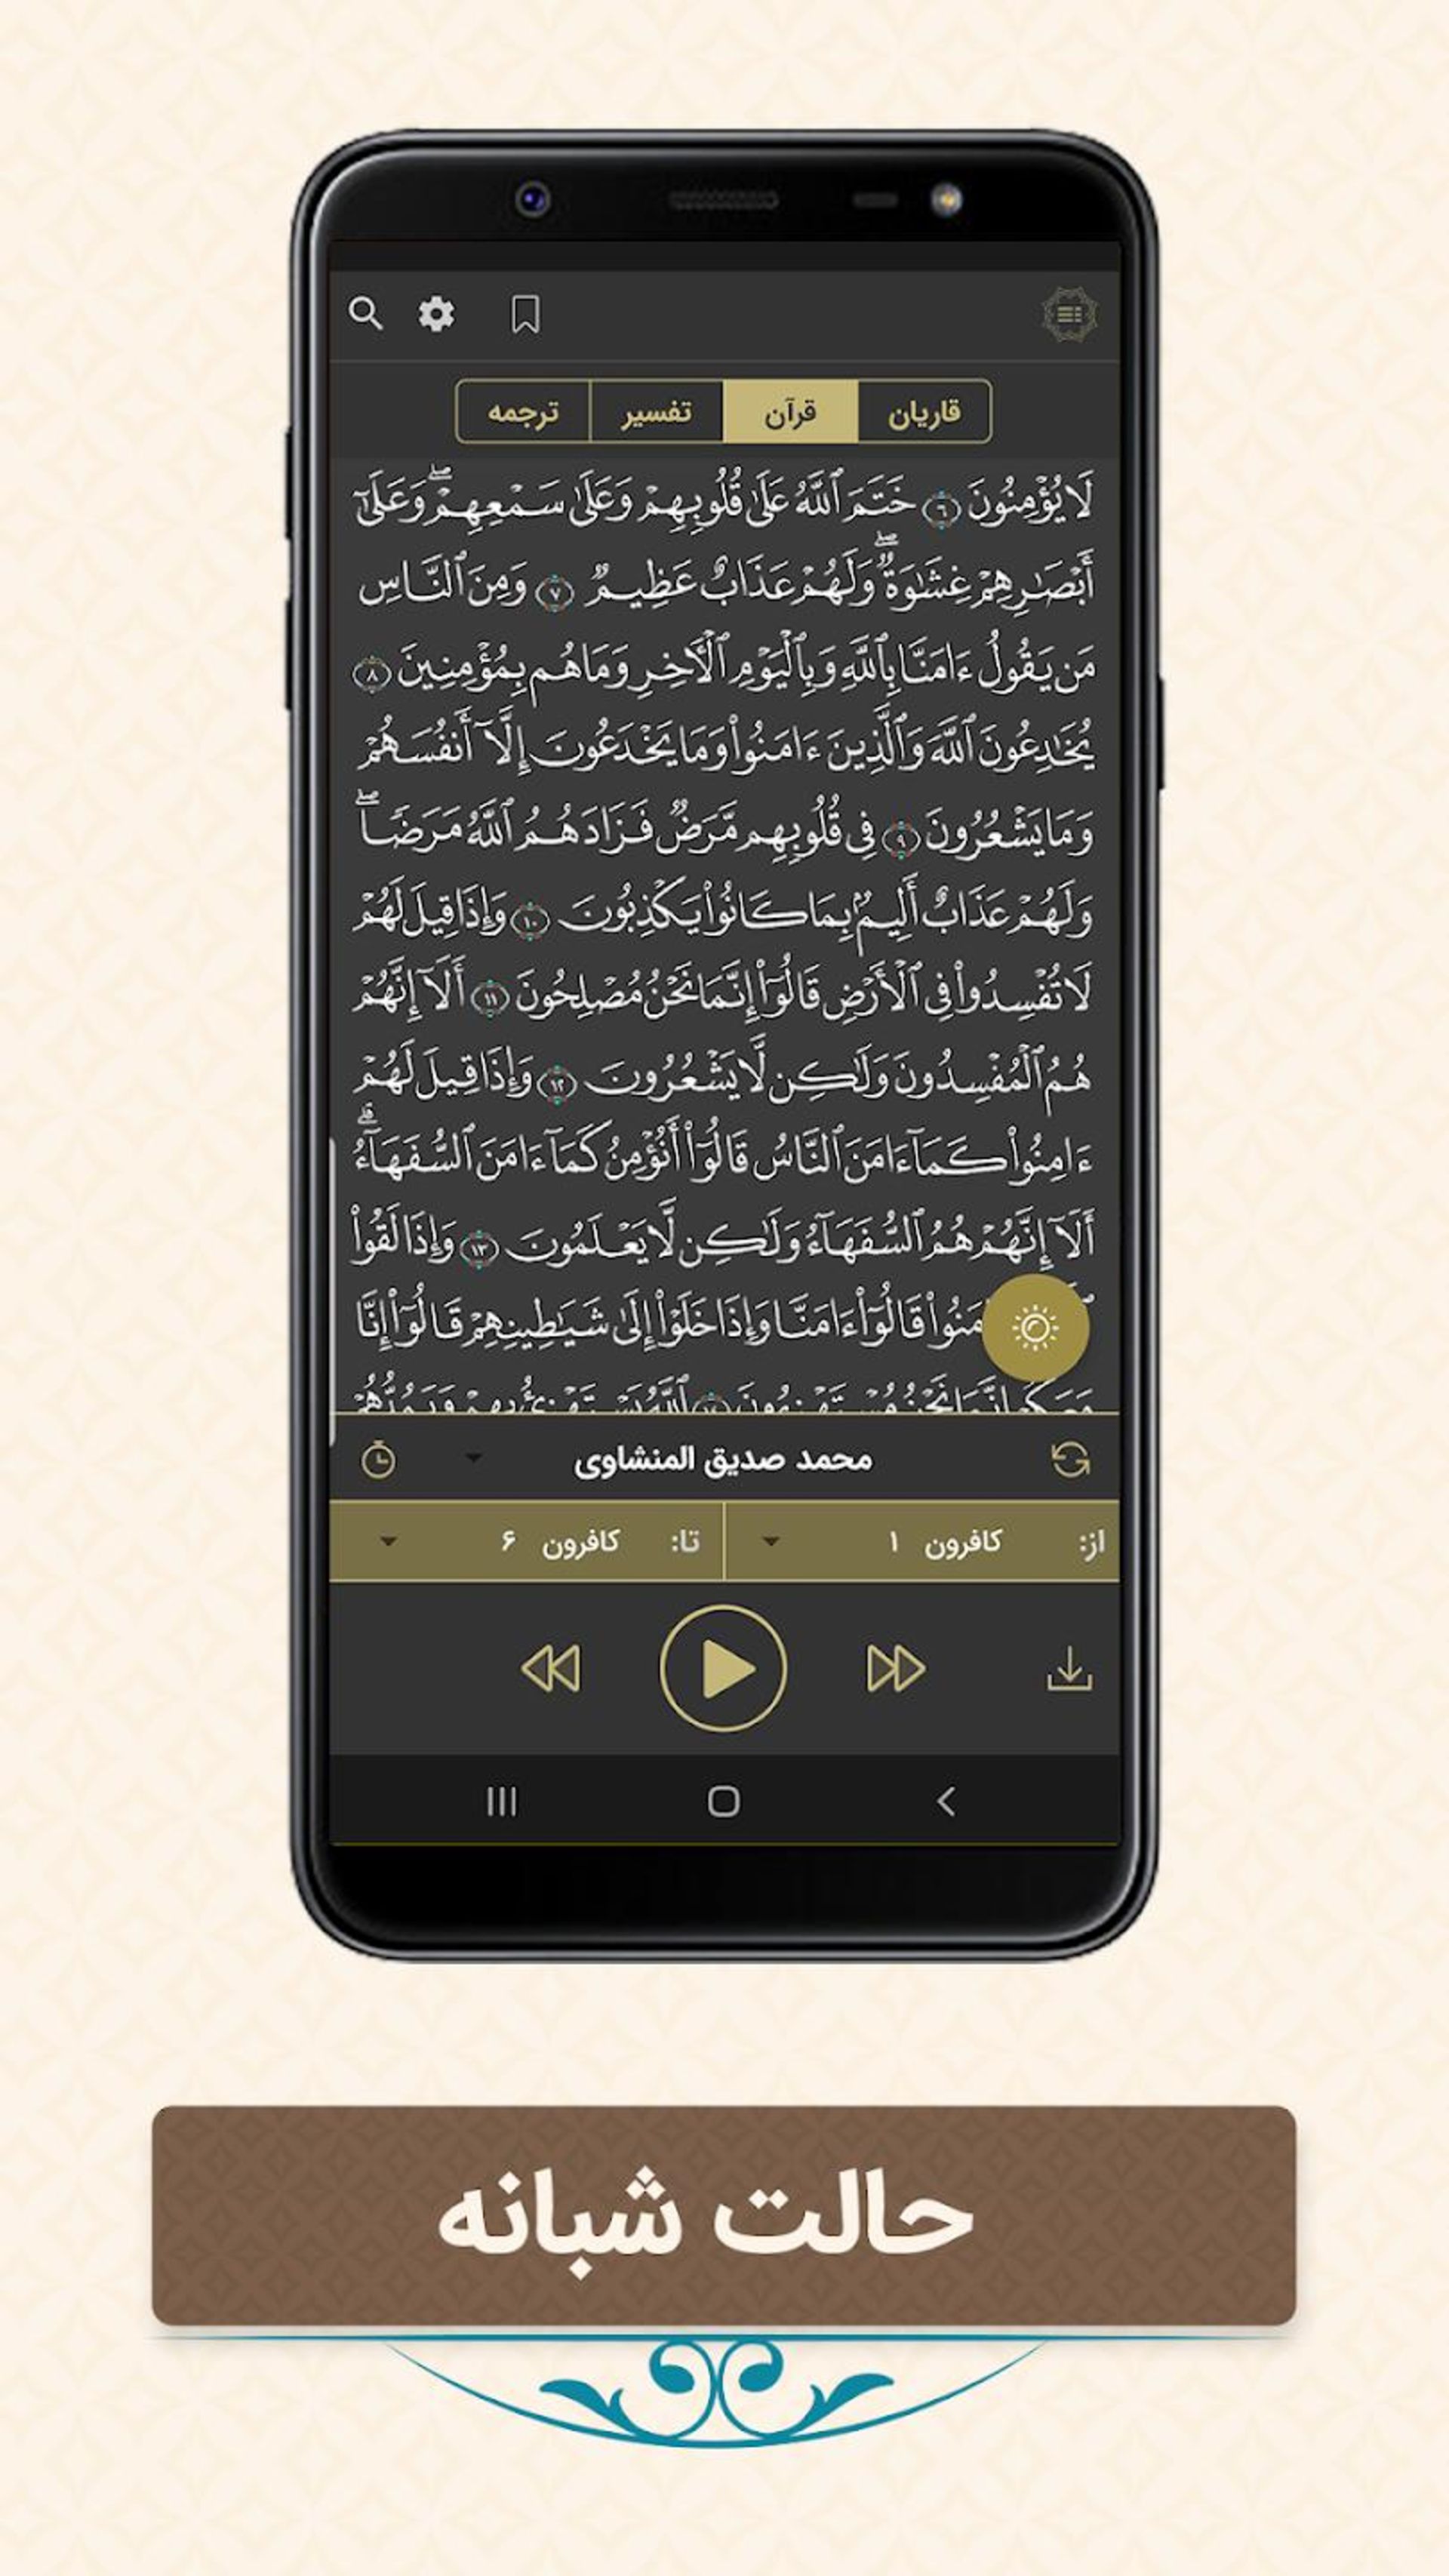 قاریان
قرآن
تفسیر
ترجمه
لَا يُؤْمِنُونَ ٦ خَتَمَ ٱللَّهُ عَلَىٰ قُلُوبِهِمْ وَعَلَىٰ سَمْعِهِمْ ۖ وَعَلَىٰٓ
أَبْصَٰرِهِمْ غِشَٰوَةٌ ۖ وَلَهُمْ عَذَابٌ عَظِيمٌ ٧ وَمِنَ ٱلنَّاسِ
مَن يَقُولُ ءَامَنَّا بِٱللَّهِ وَبِٱلْيَوْمِ ٱلْأَخِرِ وَمَا هُم بِمُؤْمِنِينَ ٨
يُخَٰدِعُونَ ٱللَّهَ وَٱلَّذِينَ ءَامَنُوا۟ وَمَا يَخْدَعُونَ إِلَّآ أَنفُسَهُمْ
وَمَا يَشْعُرُونَ ٩ فِى قُلُوبِهِم مَّرَضٌ فَزَادَهُمُ ٱللَّهُ مَرَضًا ۖ
وَلَهُمْ عَذَابٌ أَلِيمٌۢ بِمَا كَانُوا۟ يَكْذِبُونَ ١٠ وَإِذَا قِيلَ لَهُمْ
لَا تُفْسِدُوا۟ فِى ٱلْأَرْضِ قَالُوٓا۟ إِنَّمَا نَحْنُ مُصْلِحُونَ ١١ أَلَآ إِنَّهُمْ
هُمُ ٱلْمُفْسِدُونَ وَلَٰكِن لَّا يَشْعُرُونَ ١٢ وَإِذَا قِيلَ لَهُمْ
ءَامِنُوا۟ كَمَآ ءَامَنَ ٱلنَّاسُ قَالُوٓا۟ أَنُؤْمِنُ كَمَآ ءَامَنَ ٱلسُّفَهَآءُ ۗ
أَلَآ إِنَّهُمْ هُمُ ٱلسُّفَهَآءُ وَلَٰكِن لَّا يَعْلَمُونَ ١٣ وَإِذَا لَقُوا۟
قَالُوٓا۟ ءَامَنَّا وَإِذَا خَلَوْا۟ إِلَىٰ شَيَٰطِينِهِمْ قَالُوٓا۟ إِنَّا
محمد صدیق المنشاوی
از: کافرون ۱ تا: کافرون ۶
حالت شبانه